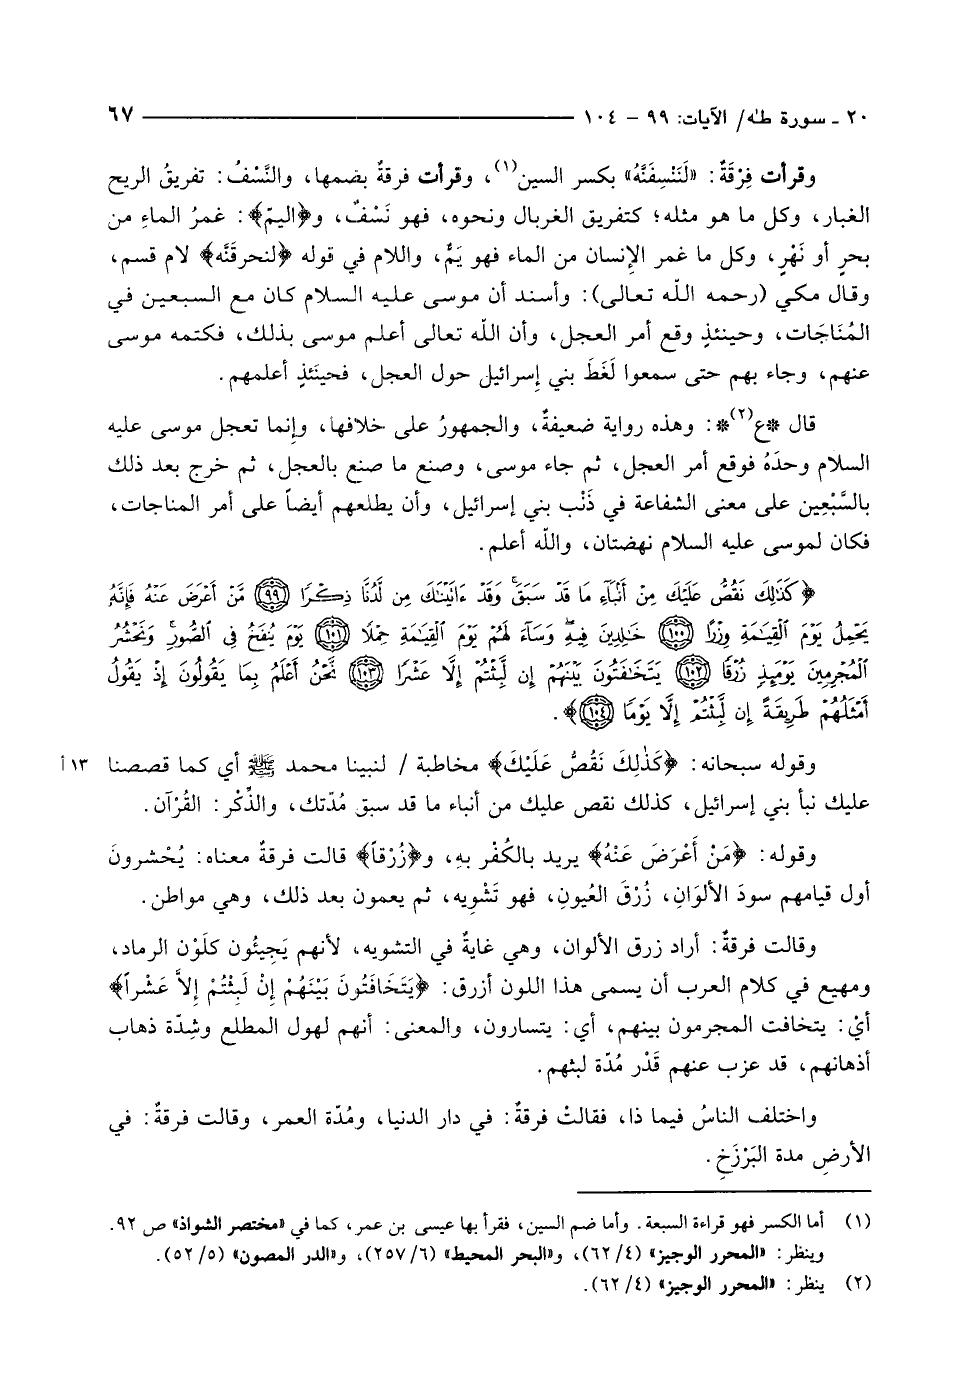 ٢٠ ـ سورة طـٰه/ الآيات: ٩٩ - ١٠٤ ٦٧
وقرأت فِرْقَةٌ: «لَنَنْسِفَنَّهُ» بكسر السين(١)، وقرأت فرقةٌ بضمها، والنَّسْفُ: تفريقُ الريح
الغبار، وكل ما هو مثله؛ كتفريق الغربال ونحوه، فهو نَسْفٌ، و﴿اليمّ﴾: غمرُ الماءِ من
بحرٍ أو نَهْرٍ، وكل ما غمر الإنسان من الماء فهو يَمٌّ، واللام في قوله ﴿لنحرقَنَّه﴾ لام قسم،
وقال مكي (رحمه اللَّه تعالى): وأسند أن موسى عليه السلام كان مع السبعين في
المُنَاجَات، وحينئذٍ وقع أمر العجل، وأن اللَّه تعالى أعلم موسى بذلك، فكتمه موسى
عنهم، وجاء بهم حتى سمعوا لَغَطَ بني إسرائيل حول العجل، فحينَئذٍ أعلمهم.
قال *ع(٢)*: وهذه رواية ضعيفةٌ، والجمهورُ على خلافها، وإنما تعجل موسى عليه
السلام وحدَهُ فوقع أمر العجل، ثم جاء موسى، وصنع ما صنع بالعجل، ثم خرج بعد ذلك
بالسَّبْعِين على معنى الشفاعة في ذَنْب بني إسرائيل، وأن يطلعهم أيضاً على أمر المناجات،
فكان لموسى عليه السلام نهضتان، واللَّه أعلم.
﴿كَذَٰلِكَ نَقُصُّ عَلَيْكَ مِنْ أَنۢبَآءِ مَا قَدْ سَبَقَۚ وَقَدْ ءَاتَيْنَٰكَ مِن لَّدُنَّا ذِكْرًا ۝٩٩ مَّنْ أَعْرَضَ عَنْهُ فَإِنَّهُۥ
يَحْمِلُ يَوْمَ ٱلْقِيَٰمَةِ وِزْرًا ۝١٠٠ خَٰلِدِينَ فِيهِۖ وَسَآءَ لَهُمْ يَوْمَ ٱلْقِيَٰمَةِ حِمْلًا ۝١٠١ يَوْمَ يُنفَخُ فِى ٱلصُّورِۚ وَنَحْشُرُ
ٱلْمُجْرِمِينَ يَوْمَئِذٍ زُرْقًا ۝١٠٢ يَتَخَٰفَتُونَ بَيْنَهُمْ إِن لَّبِثْتُمْ إِلَّا عَشْرًا ۝١٠٣ نَّحْنُ أَعْلَمُ بِمَا يَقُولُونَ إِذْ يَقُولُ
أَمْثَلُهُمْ طَرِيقَةً إِن لَّبِثْتُمْ إِلَّا يَوْمًا ۝١٠٤﴾.
وقوله سبحانه: ﴿كَذَٰلِكَ نَقُصُّ عَلَيْكَ﴾ مخاطبة / لنبينا محمد ﷺ أي كما قصصنا ١٣ أ
عليك نبأ بني إسرائيل، كذلك نقص عليك من أنباء ما قد سبق مُدّتك، والذِّكْر: القُرْآن.
وقوله: ﴿مَنْ أَعْرَضَ عَنْهُ﴾ يريد بالكُفْر بهِ، و﴿زُرْقاً﴾ قالت فرقةٌ معناه: يُحْشرونَ
أول قيامهم سودَ الألوَانِ، زُرْقَ العُيونِ، فهو تَشْوِيه، ثم يعمون بعد ذلك، وهي مواطن.
وقالت فرقةٌ: أراد زرق الألوان، وهي غايةٌ في التشويه، لأنهم يَجِيئُون كلَوْن الرماد،
ومهيع في كلام العرب أن يسمى هذا اللون أزرق: ﴿يَتَخَافَتُونَ بَيْنَهُمْ إِنْ لَبِثْتُمْ إِلاَّ عَشْراً﴾
أيْ: يتخافت المجرمون بينهم، أي: يتسارون، والمعنى: أنهم لهول المطلع وشِدّة ذهاب
أذهانهم، قد عزب عنهم قَدْر مُدّة لبثهم.
واختلف الناسُ فيما ذا، فقالتْ فرقةٌ: في دار الدنيا، ومُدّة العمر، وقالت فرقةٌ: في
الأرضِ مدة البَرْزَخِ.
(١) أما الكسر فهو قراءة السبعة. وأما ضم السين، فقرأ بها عيسى بن عمر، كما في «مختصر الشواذ» ص ٩٢.
وينظر: «المحرر الوجيز» (٤/ ٦٢)، و«البحر المحيط» (٦/ ٢٥٧)، و«الدر المصون» (٥/ ٥٢).
(٢) ينظر: «المحرر الوجيز» (٤/ ٦٢).